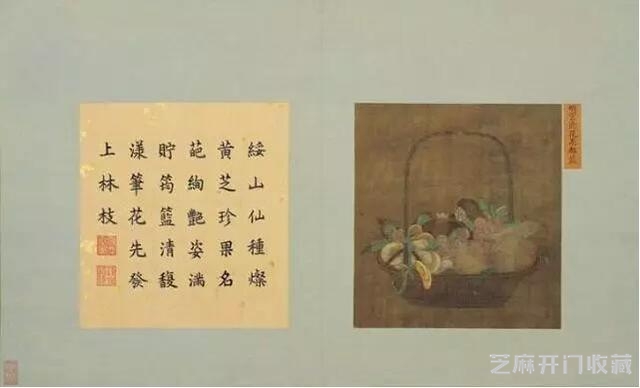 綏山仙種燦
黃芝珍果名
葩絢艷姿滿
貯筠籃清馥
漾筆花先發
上林枝
芝麻开门收藏